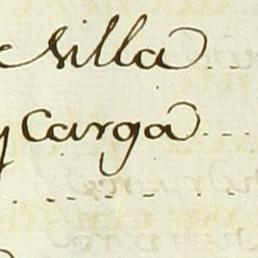 Silla
y Carga